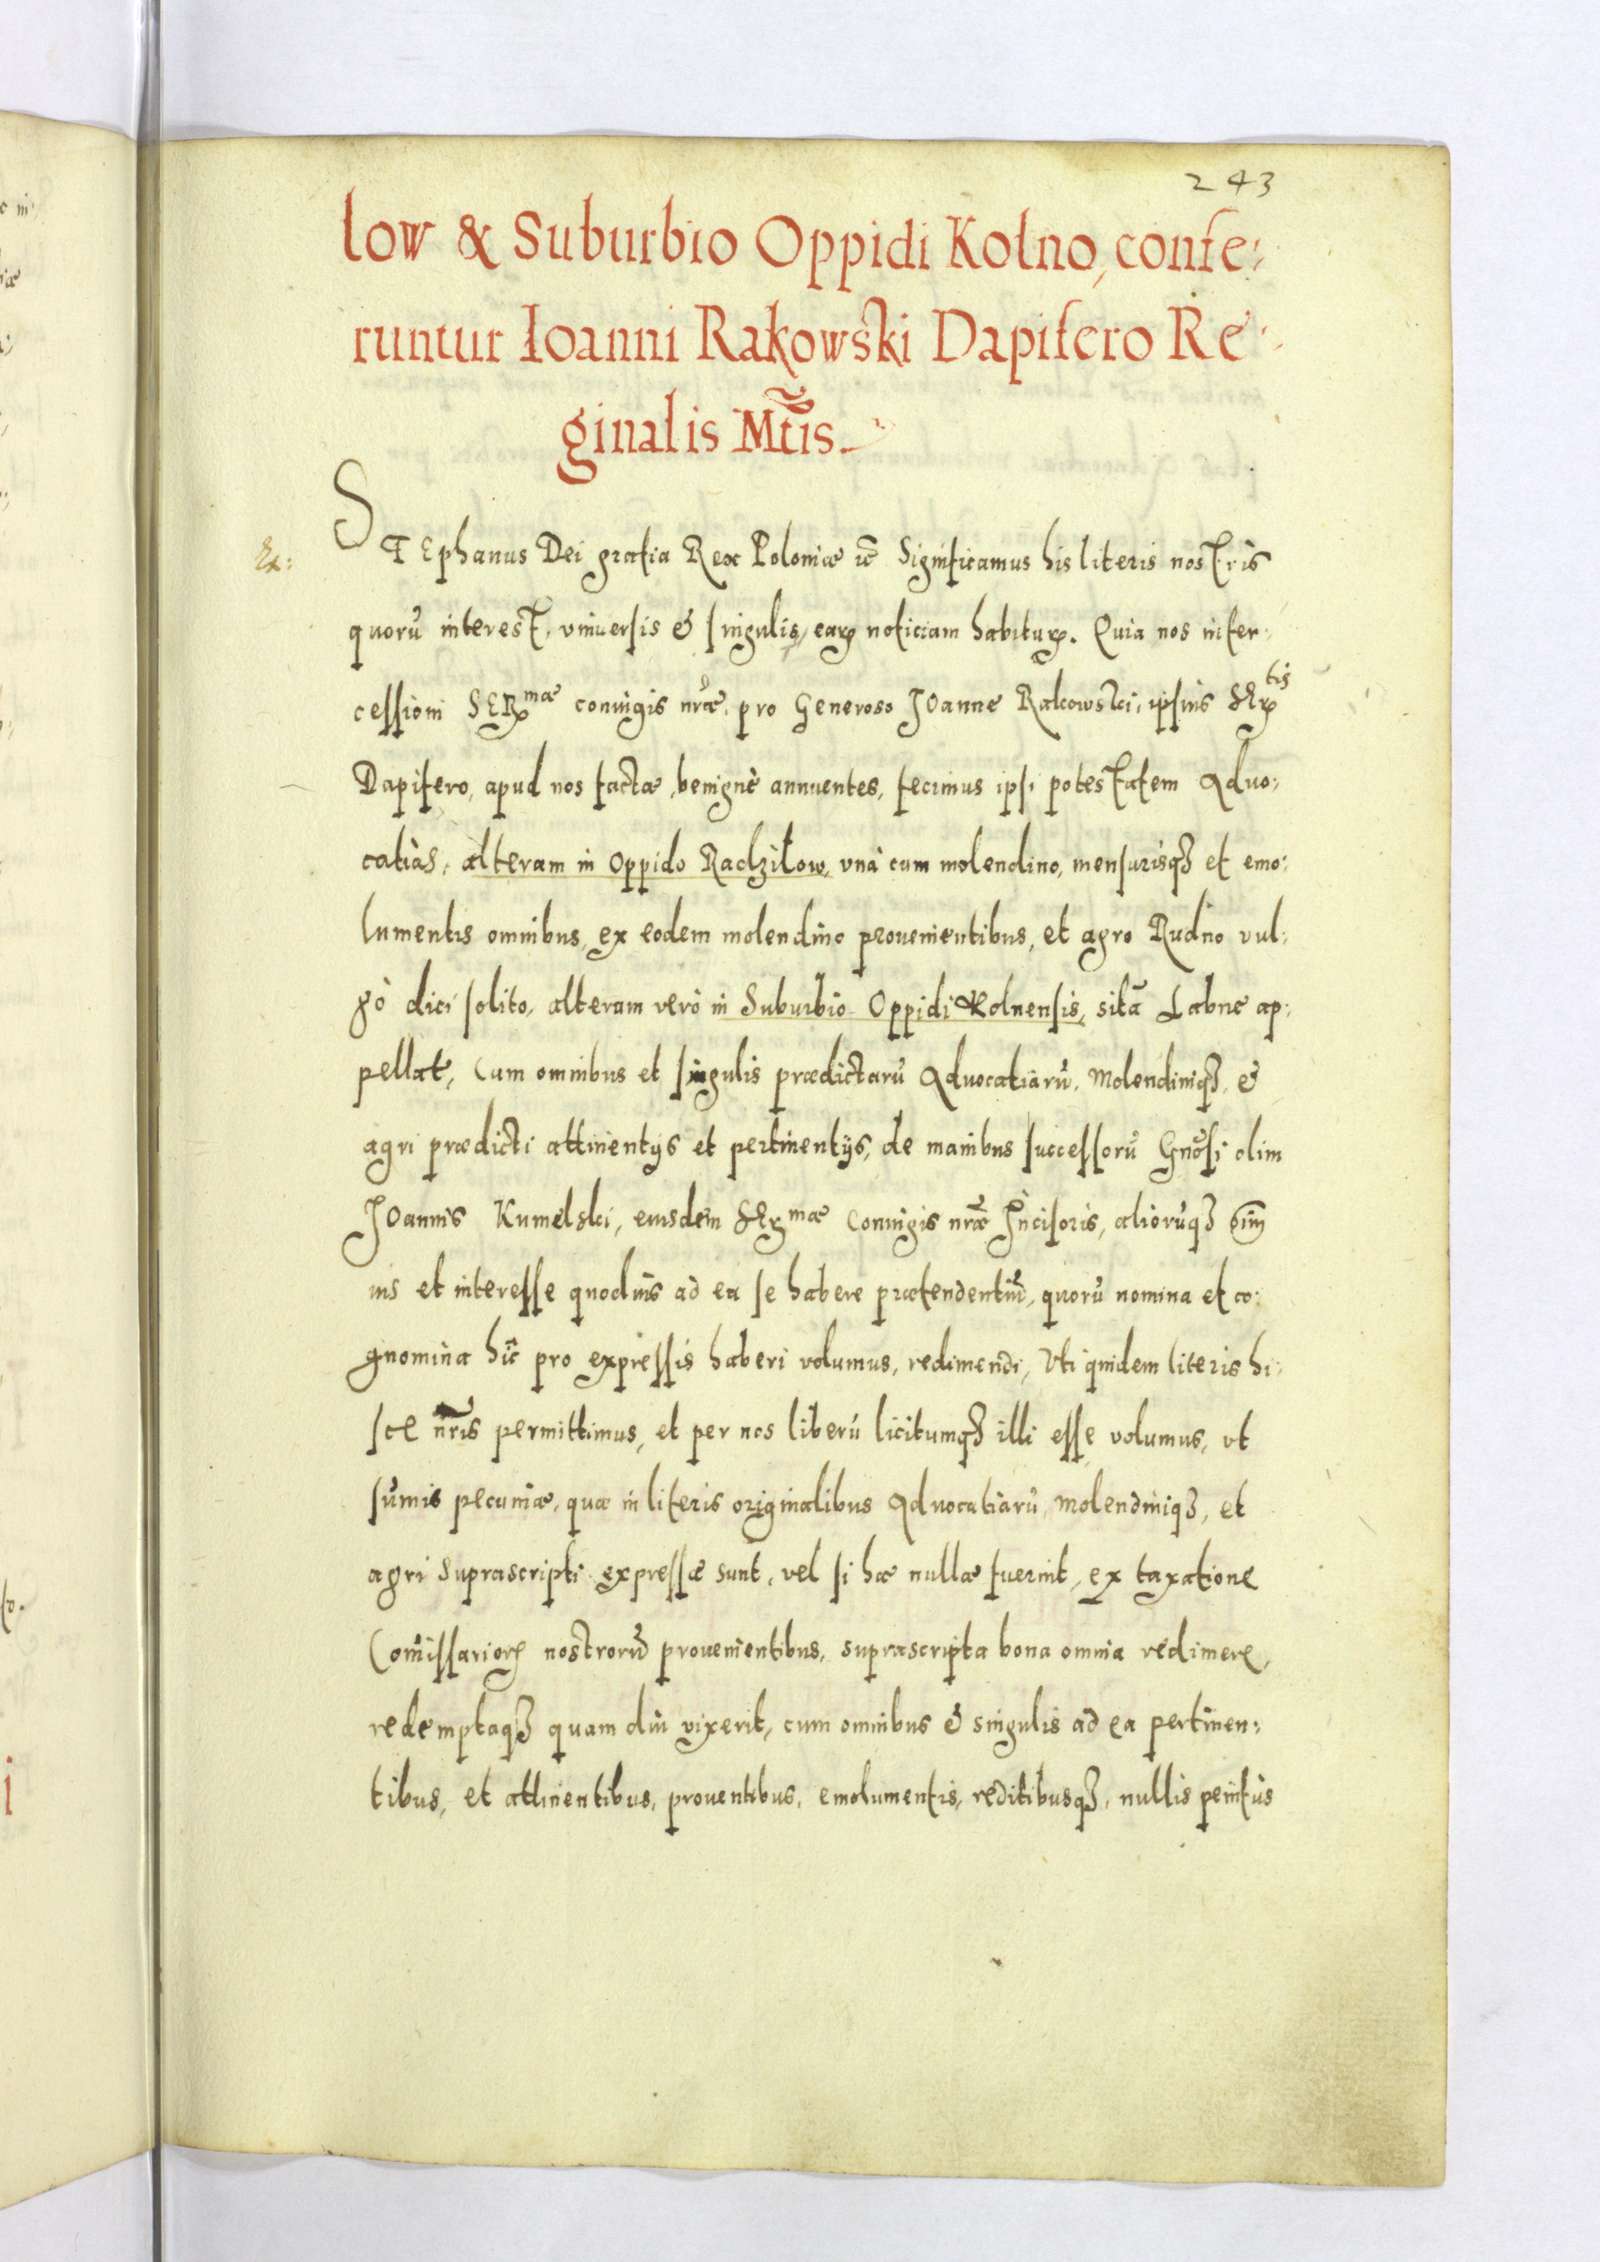 243
low & Suburbio Oppidi Kolno, confe:
runtur Ioanni Rakowski Dapifero Re:
ginalis Mt̃is.
STEphanus Dei gratia Rex Poloniæ ꝛc̃ Significamus his literis nostris
quorũ interest, vniuersis & singulis, earꝝ noticiam habiturꝝ. Quia nos inter:
cessioni SERmæ coniugis nr̃æ, pro Generoso JOanne Rakowski, ipsius Sertis
Dapifero, apud nos factæ, benignè annuentes, fecimus ipsi potestatem Aduo:
catiàs, alteram in Oppido Radzilow, vnà cum molendino, mensurisqꝫ et emo:
lumentis omnibus, ex eodem molendino prouenientibus, et agro Rudno vul:
gò dici solito, alteram verò in Suburbio Oppidi Kolnensis, sitã Labne ap:
pellat, Cum omnibus et singulis prædictarũ Aduocatiarũ, Molendiniqꝫ, &
agri prædicti attinentijs et pertinentijs, de manibus successorũ Gnõsi olim
JOannis Kumelski, eiusdem Sermæ Coniugis nr̃æ Incisoris, aliorũqꝫ oĩm
ius et interesse quoduis ad ea se habere prætendentiũ, quorũ nomina et co:
gnomina hîc pro expressis haberi volumus, redimendi, Vti quidem literis hi:
sce nr̃is permittimus, et per nos liberũ licitumqꝫ illi esse volumus, vt
sũmis pecuniæ, quæ in literis originalibus Aduocatiarũ, Molendiniqꝫ, et
agri suprascripti expressæ sunt, vel si hæ nullæ fuerint, ex taxatione
Com̃issariorꝝ nostrorũ prouenientibus, suprascripta bona omnia redimere,
redemptaqꝫ quam diu vixerit, cum omnibus & singulis ad ea pertinen:
tibus, et attinentibus, prouentibus, emolumentis, reditibusqꝫ, nullis penitùs